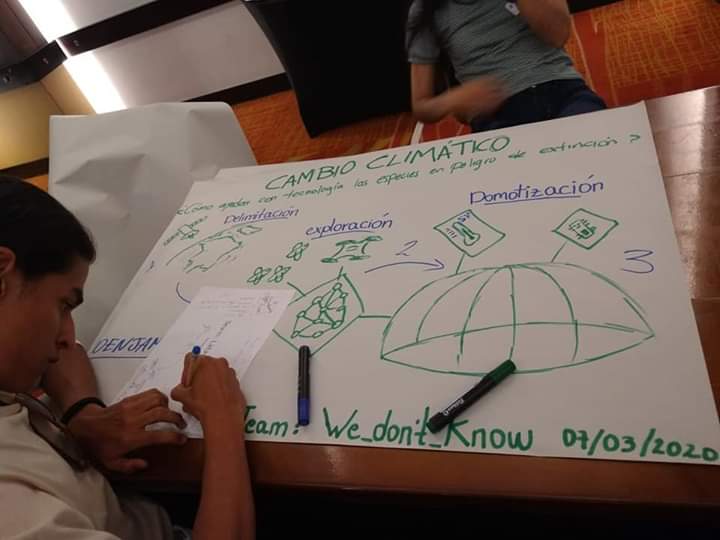 CAMBIO CLIMÁTICO
¿Cómo ayudas con tecnología las especies en peligro de extinción?
Delimitación
exploración
Domotización
2
3
DENJAM
Team: We_don't_Know 07/03/2020